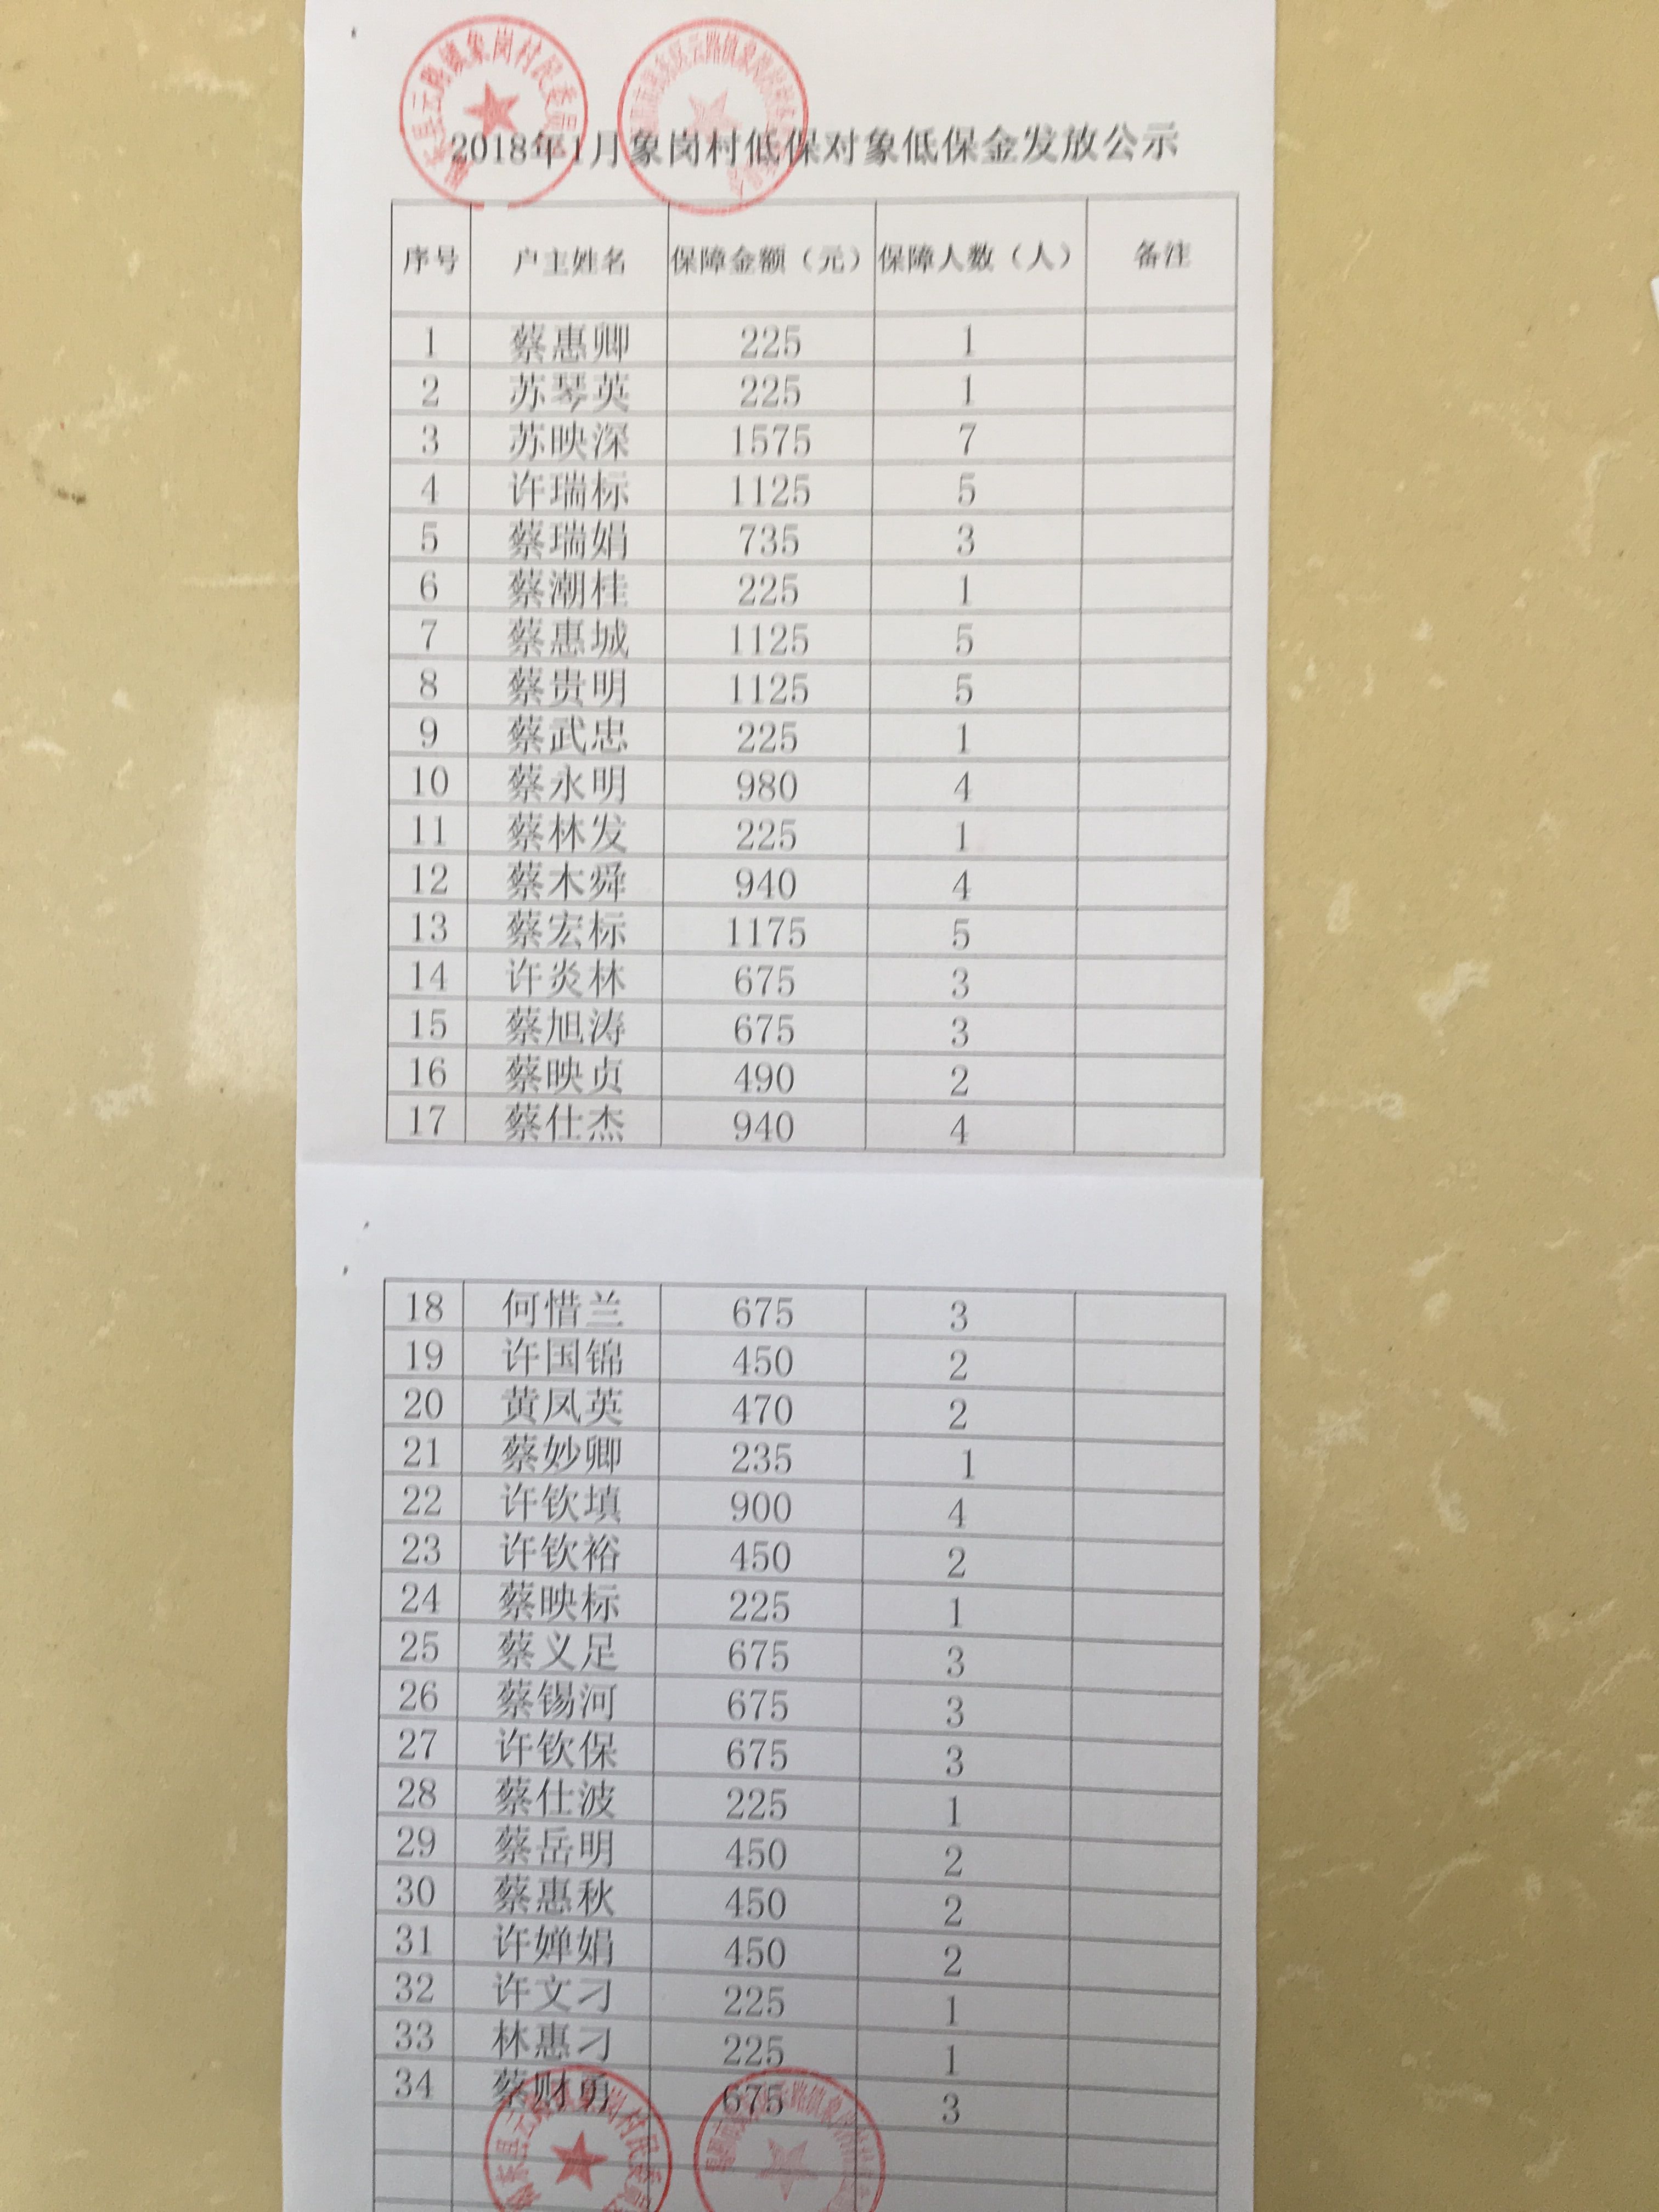 2018年1月象岗村低保对象低保金发放公示
序号 户主姓名 保障金额（元） 保障人数（人） 备注
1 蔡惠卿 225 1
2 苏琴英 225 1
3 苏映深 1575 7
4 许瑞标 1125 5
5 蔡瑞娟 735 3
6 蔡潮桂 225 1
7 蔡惠城 1125 5
8 蔡贵明 1125 5
9 蔡武忠 225 1
10 蔡永明 980 4
11 蔡林发 225 1
12 蔡木舜 940 4
13 蔡宏标 1175 5
14 许炎林 675 3
15 蔡旭涛 675 3
16 蔡映贞 490 2
17 蔡仕杰 940 4
18 何惜兰 675 3
19 许国锦 450 2
20 黄凤英 470 2
21 蔡妙卿 235 1
22 许钦填 900 4
23 许钦裕 450 2
24 蔡映标 225 1
25 蔡义足 675 3
26 蔡锡河 675 3
27 许钦保 675 3
28 蔡仕波 225 1
29 蔡岳明 450 2
30 蔡惠秋 450 2
31 许婵娟 450 2
32 许文刁 225 1
33 林惠刁 225 1
34 蔡财勇 675 3